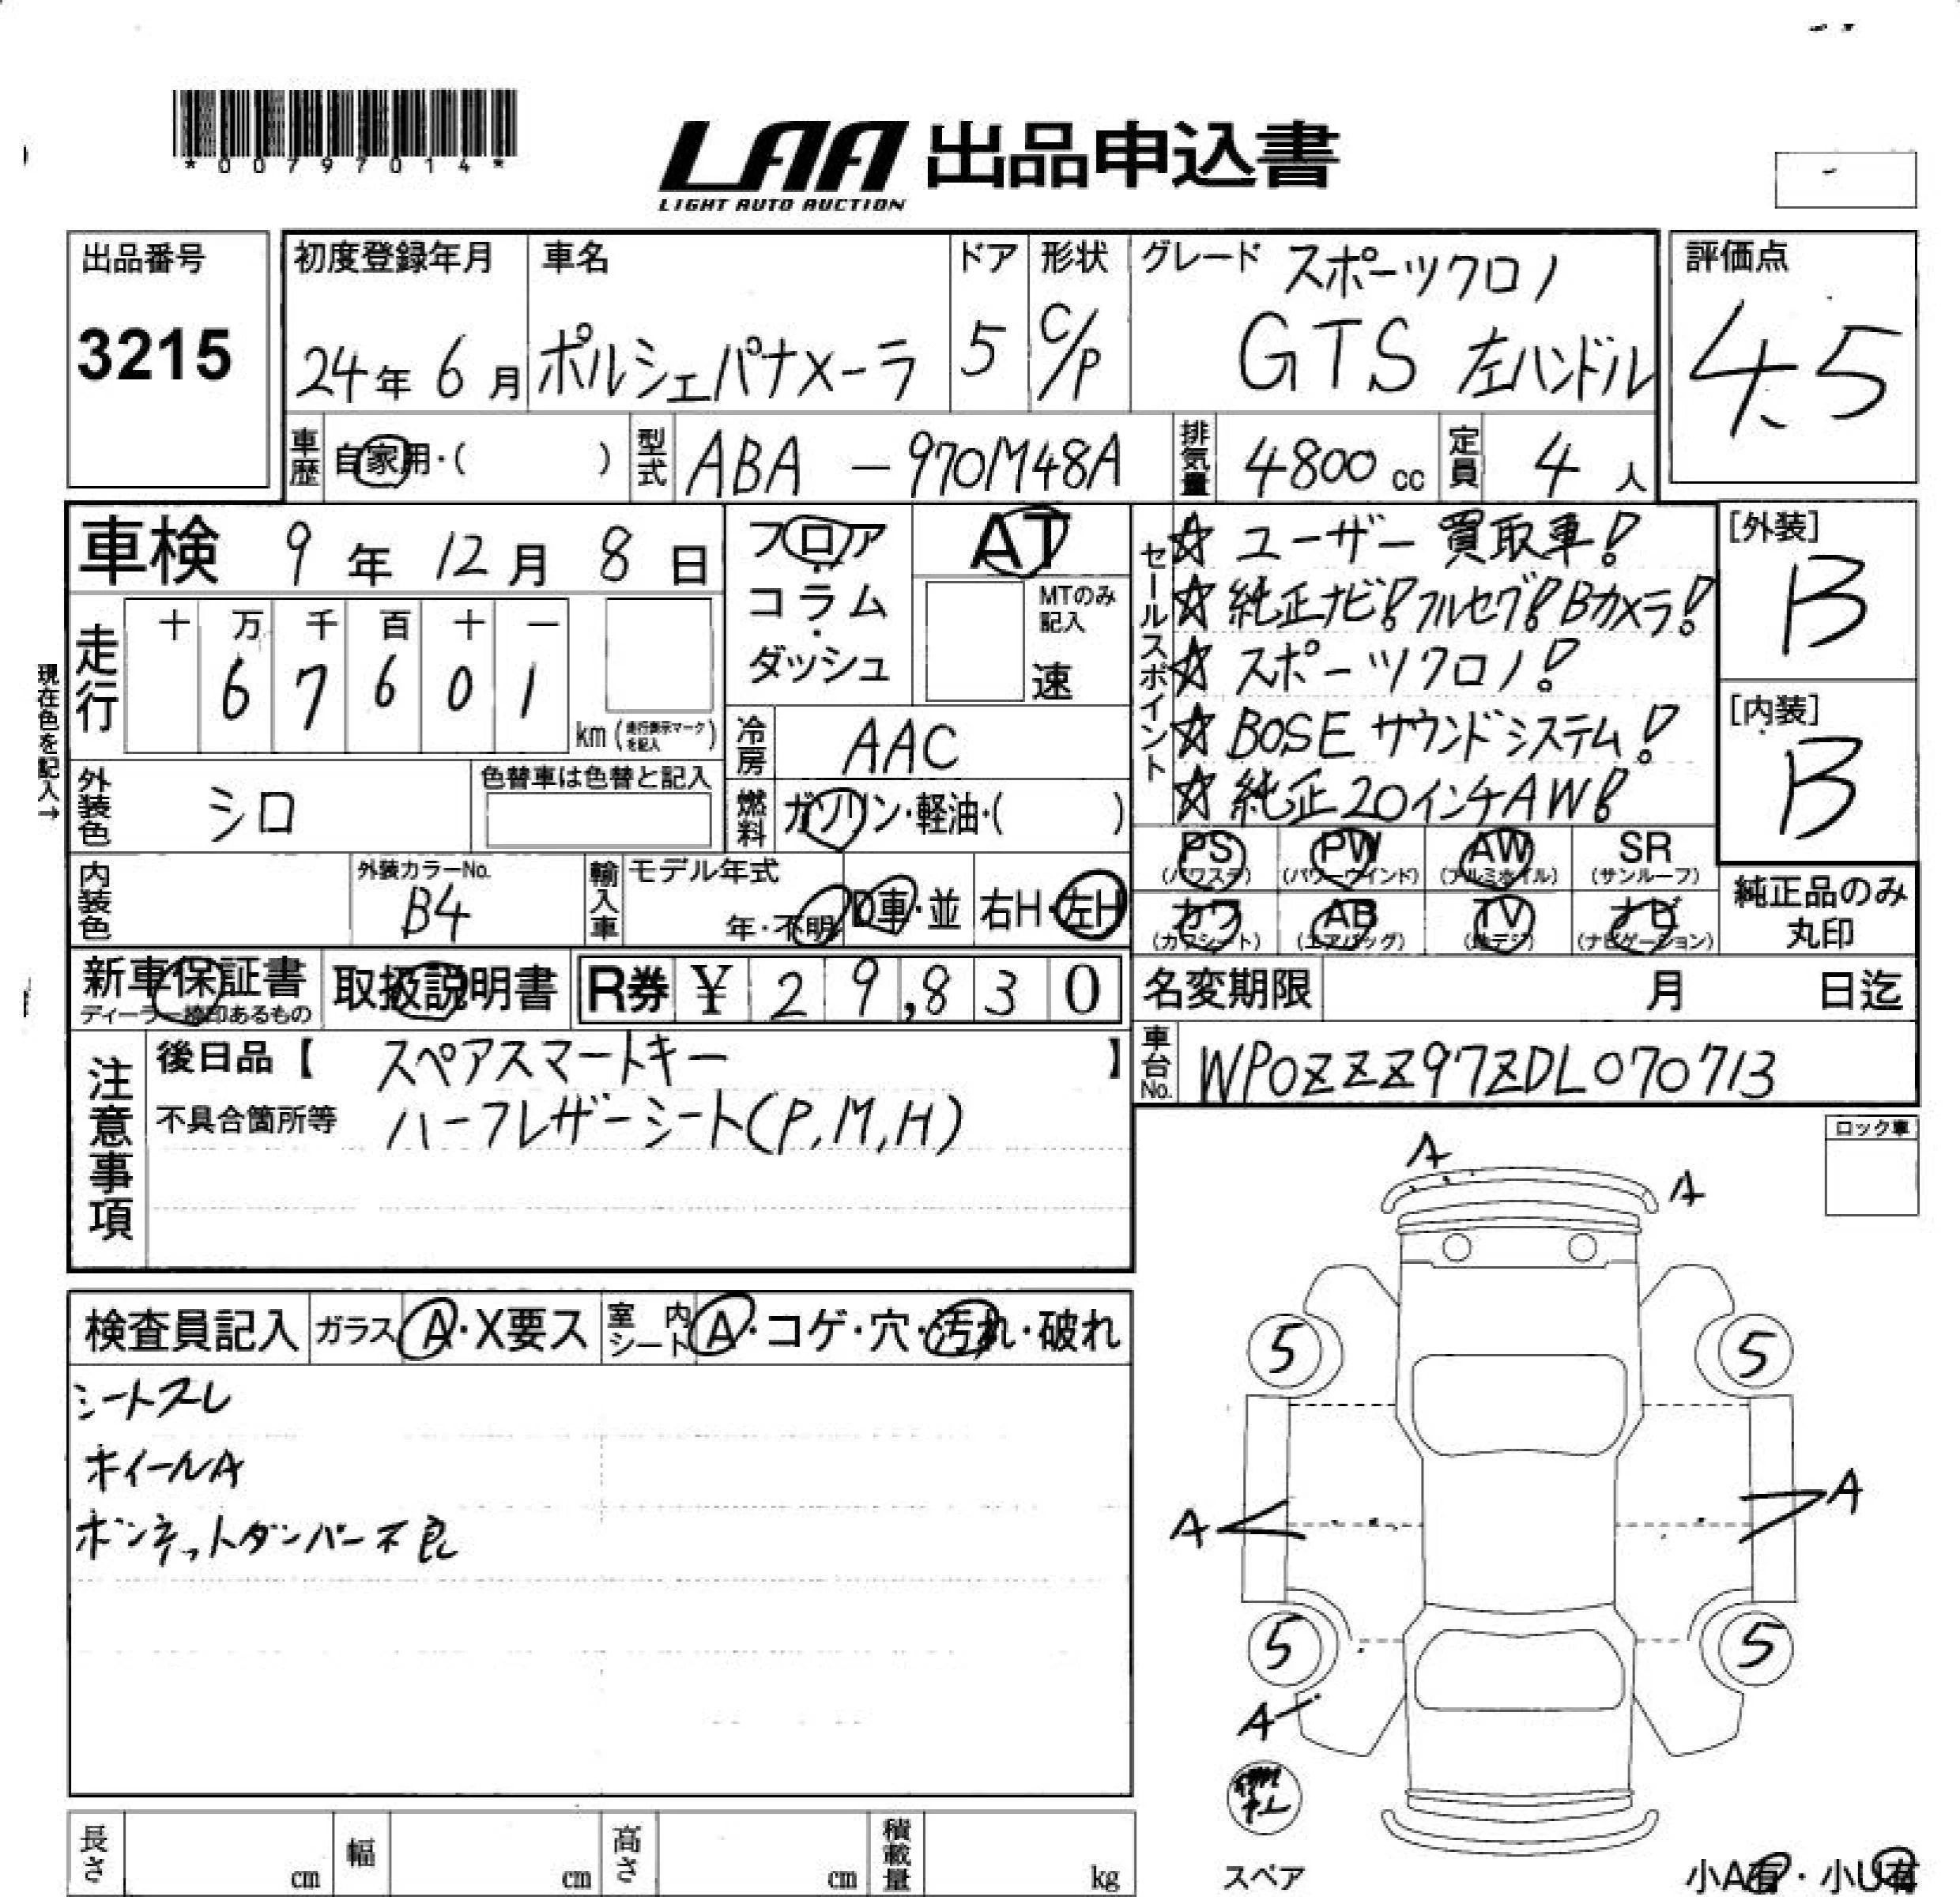 *00797014*
LAA 出品申込書
LIGHT AUTO AUCTION
出品番号
3215
初度登録年月
24年 6月
車名
ポルシェパナメーラ
ドア
5
形状
C/P
グレード
スポーツクロノ
GTS 左ハンドル
評価点
4.5
車歴 自家用・( )
型式 ABA - 970M48A
排気量 4800 cc
定員 4 人
車検 9年 12月 8日
フロア・コラム・ダッシュ
AT
MTのみ記入
速
走行
十 万 千 百 十 一
6 7 6 0 1
km (走行表示マークを記入)
現在色を記入→
冷房 AAC
燃料 ガソリン・軽油・( )
外装色 シロ
色替車は色替と記入
内装色
外装カラーNo.
B4
輸入車
モデル年式
年・不明
D車・並
右H・左H
セールスポイント
☆ ユーザー買取車!
☆ 純正ナビ! フルセグ! Bカメラ!
☆ スポーツクロノ!
☆ BOSE サウンドシステム!
☆ 純正20インチAW!
[外装]
B
[内装]
B
PS (パワステ)
PW (パワーウインド)
AW (アルミホイル)
SR (サンルーフ)
カワ (カワシート)
AB (エアバッグ)
TV (地デジ)
ナビ (ナビゲーション)
純正品のみ
丸印
新車保証書
ディーラー捺印あるもの
取扱説明書
R券 ¥ 29,830
名変期限 月 日迄
車台No. WP0ZZZ97ZDL070713
注意事項
後日品【 スペアスマートキー 】
不具合箇所等 ハーフレザーシート(P,M,H)
ロック車
検査員記入
ガラス A・X要ス
室内シート A・コゲ・穴・汚れ・破れ
シートスレ
ホイールA
ボンネットダンパー不良
A
A
5
5
A
A
5
5
A
スペア
小A有・小U有
長さ cm
幅 cm
高さ cm
積載量 kg